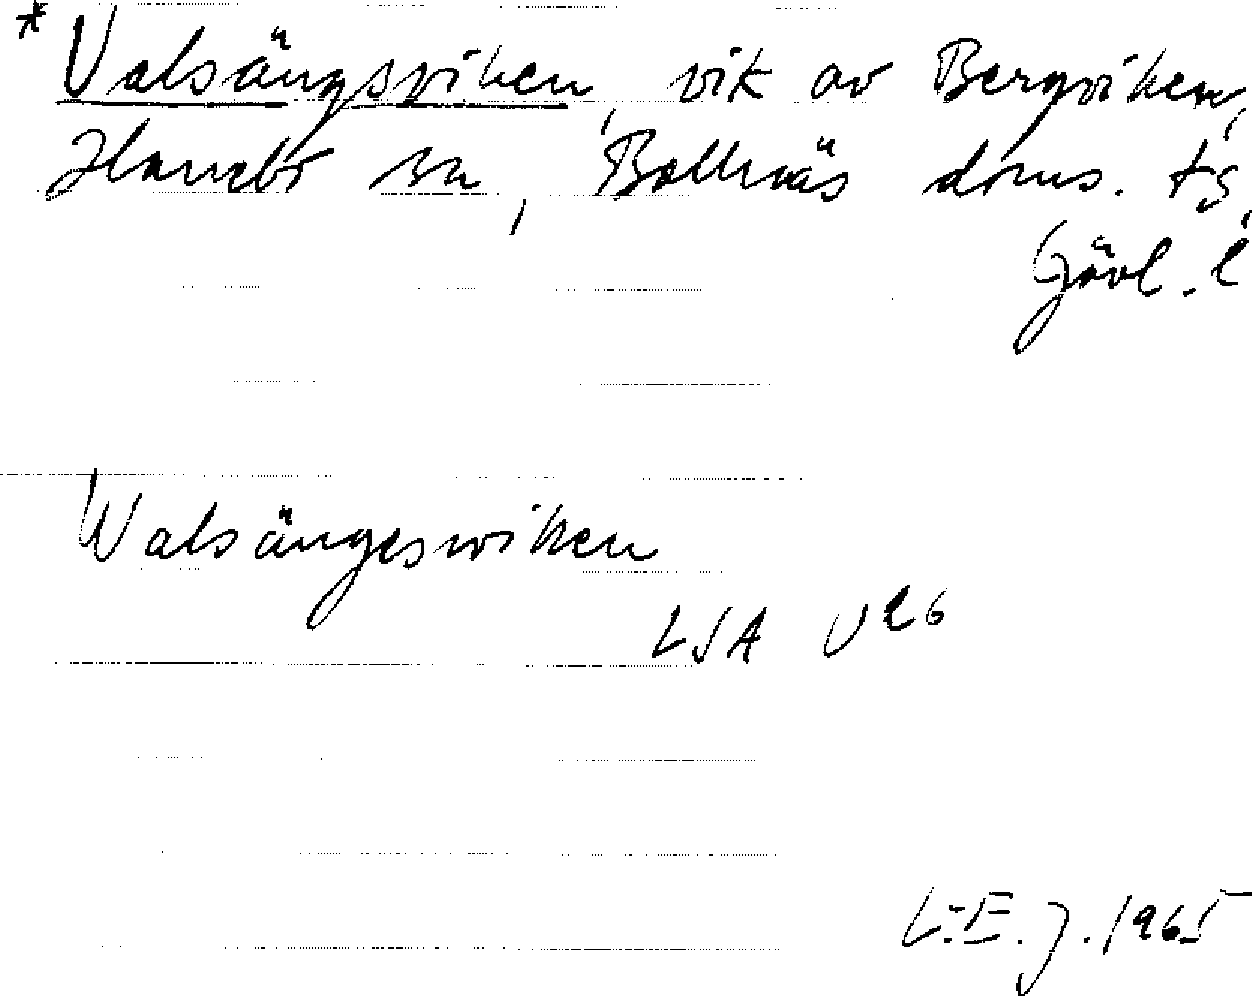 * Valsängsviken, vik av Bergviken,
Hanebo sn, Bollnäs doms. tg,
Gävl. l
Walsängeswiken
LSA U26
L.E.J. 1965